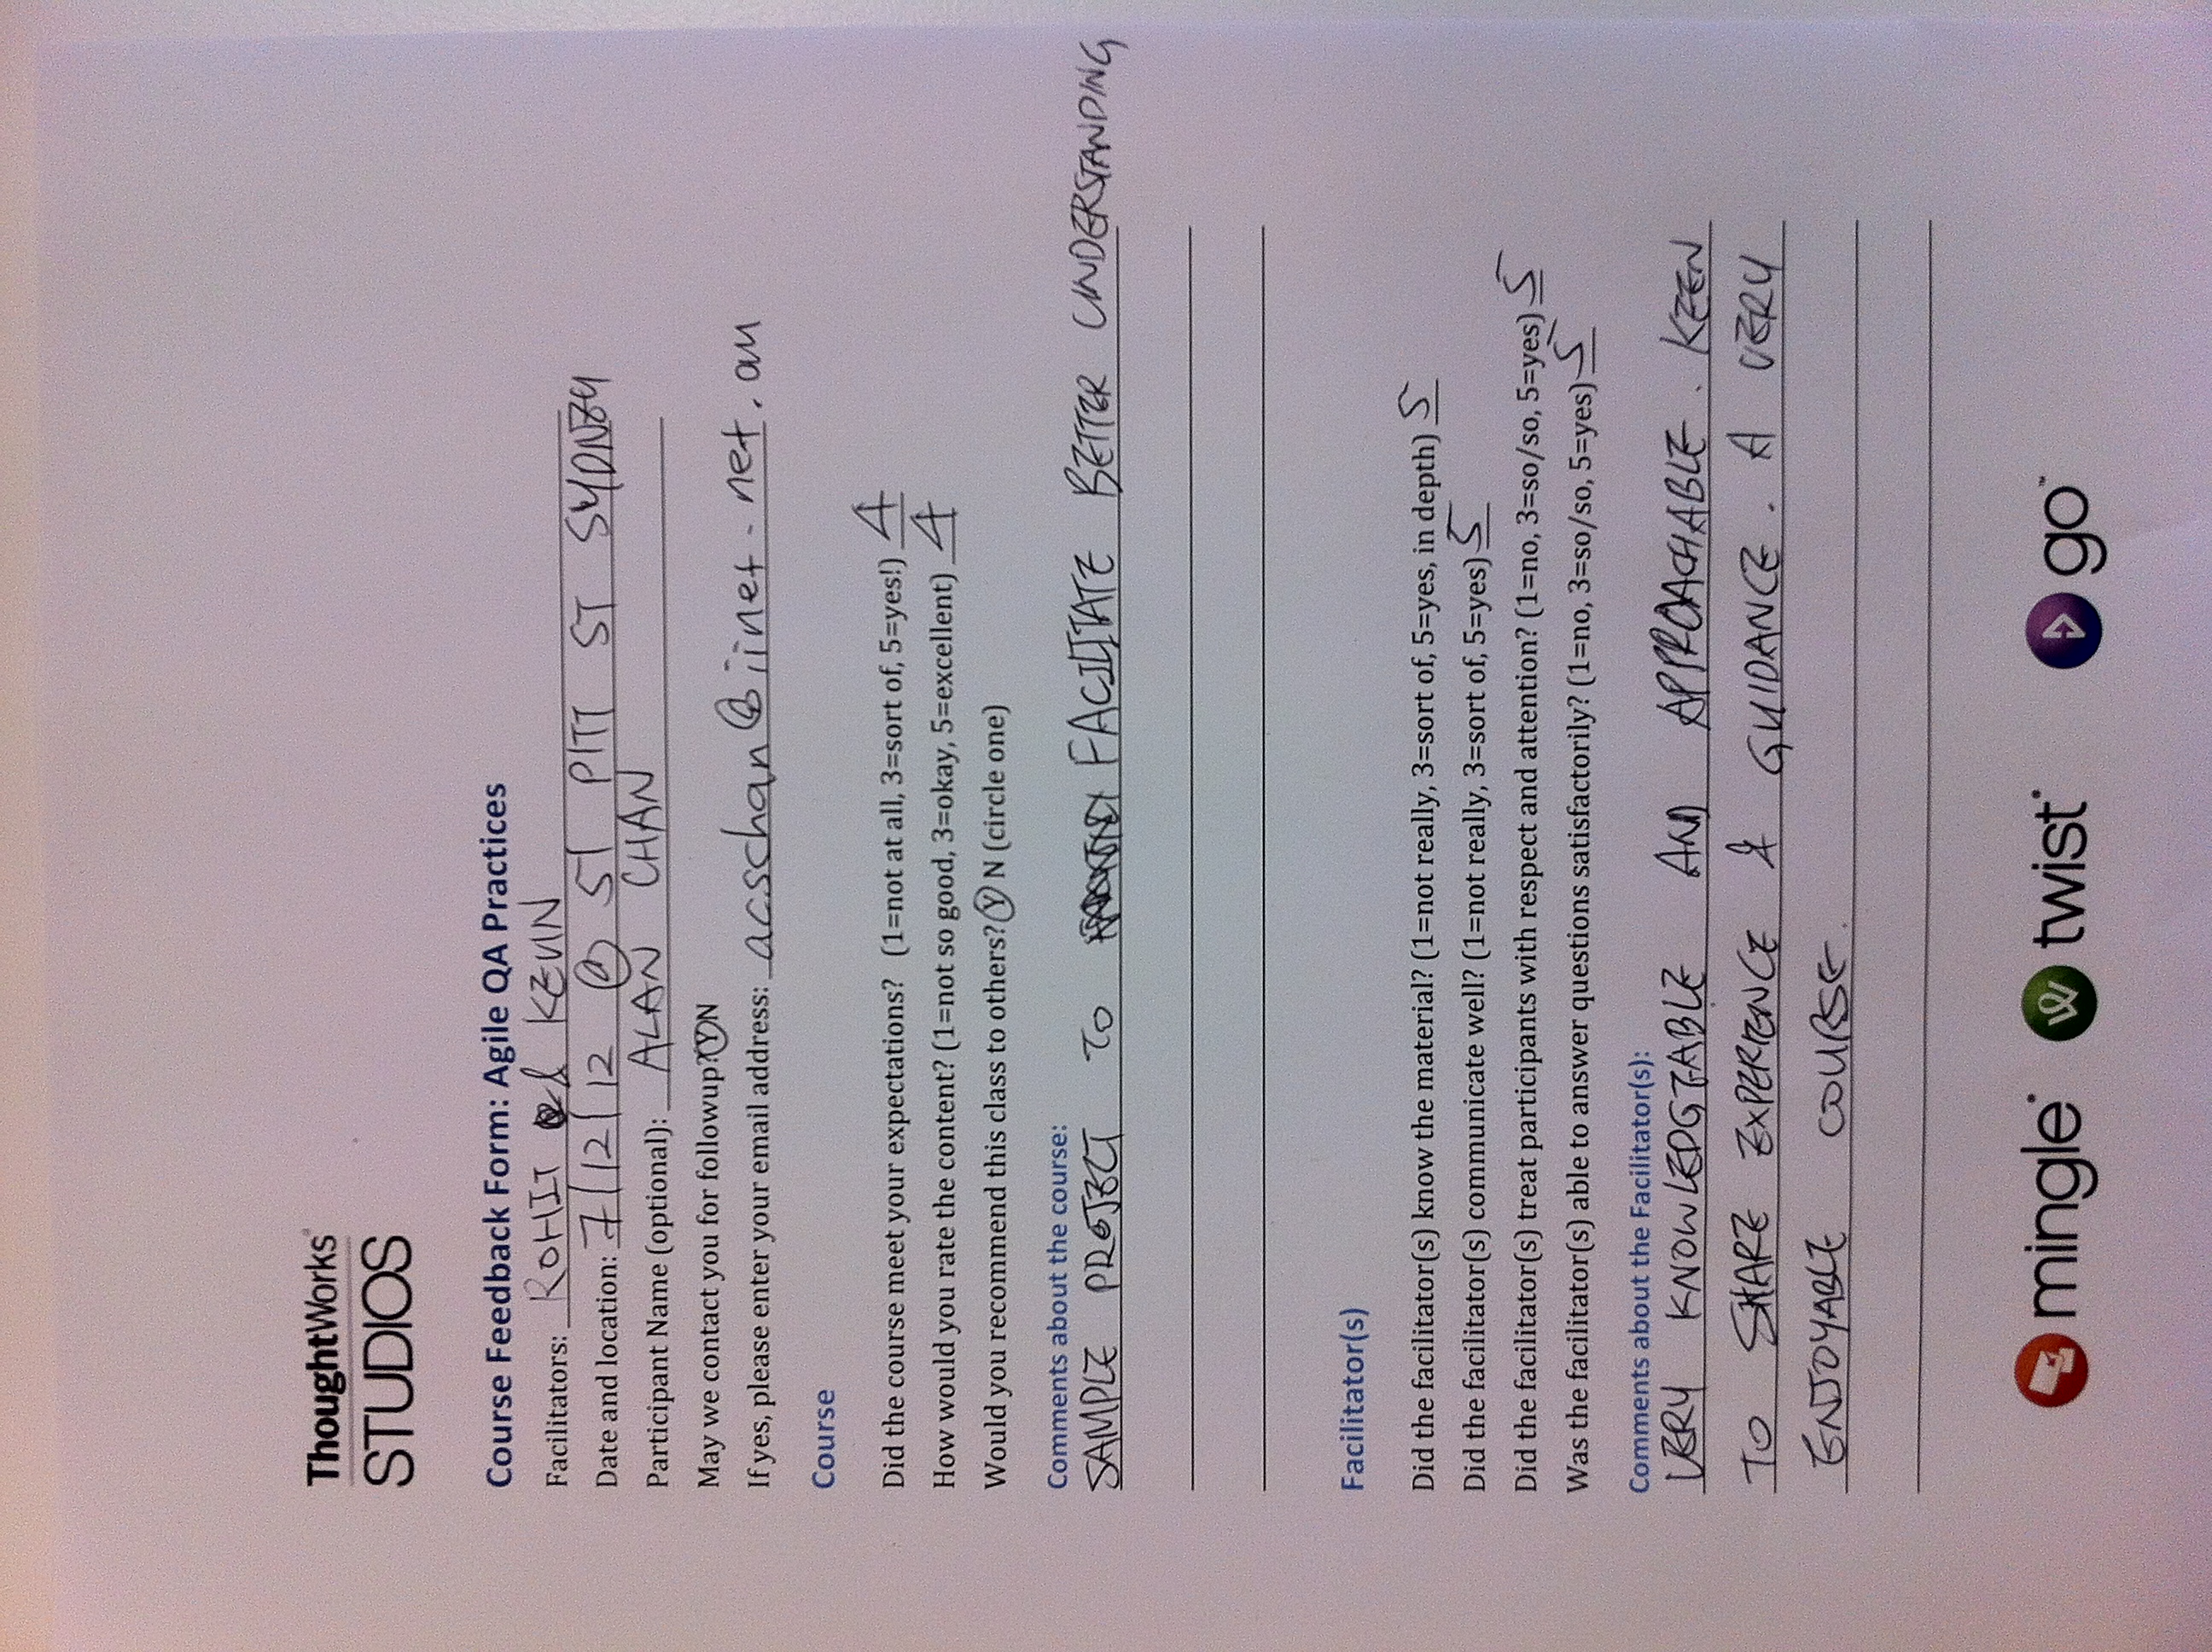 ThoughtWorks®
STUDIOS
Course Feedback Form: Agile QA Practices
Facilitators: ROHIT & KEVIN
Date and location: 7/12/12 @ 51 PITT ST SYDNEY
Participant Name (optional): ALAN CHAN
May we contact you for followup? Y N
If yes, please enter your email address: acschan@iinet.net.au
Course
Did the course meet your expectations? (1=not at all, 3=sort of, 5=yes!) 4
How would you rate the content? (1=not so good, 3=okay, 5=excellent) 4
Would you recommend this class to others? Y N (circle one)
Comments about the course:
SAMPLE PROJECT TO FACILITATE BETTER UNDERSTANDING
Facilitator(s)
Did the facilitator(s) know the material? (1=not really, 3=sort of, 5=yes, in depth) 5
Did the facilitator(s) communicate well? (1=not really, 3=sort of, 5=yes) 5
Did the facilitator(s) treat participants with respect and attention? (1=no, 3=so/so, 5=yes) 5
Was the facilitator(s) able to answer questions satisfactorily? (1=no, 3=so/so, 5=yes) 5
Comments about the Facilitator(s):
VERY KNOWLEDGEABLE AND APPROACHABLE. KEEN
TO SHARE EXPERIENCE & GUIDANCE. A VERY
ENJOYABLE COURSE.
mingle® twist® go™